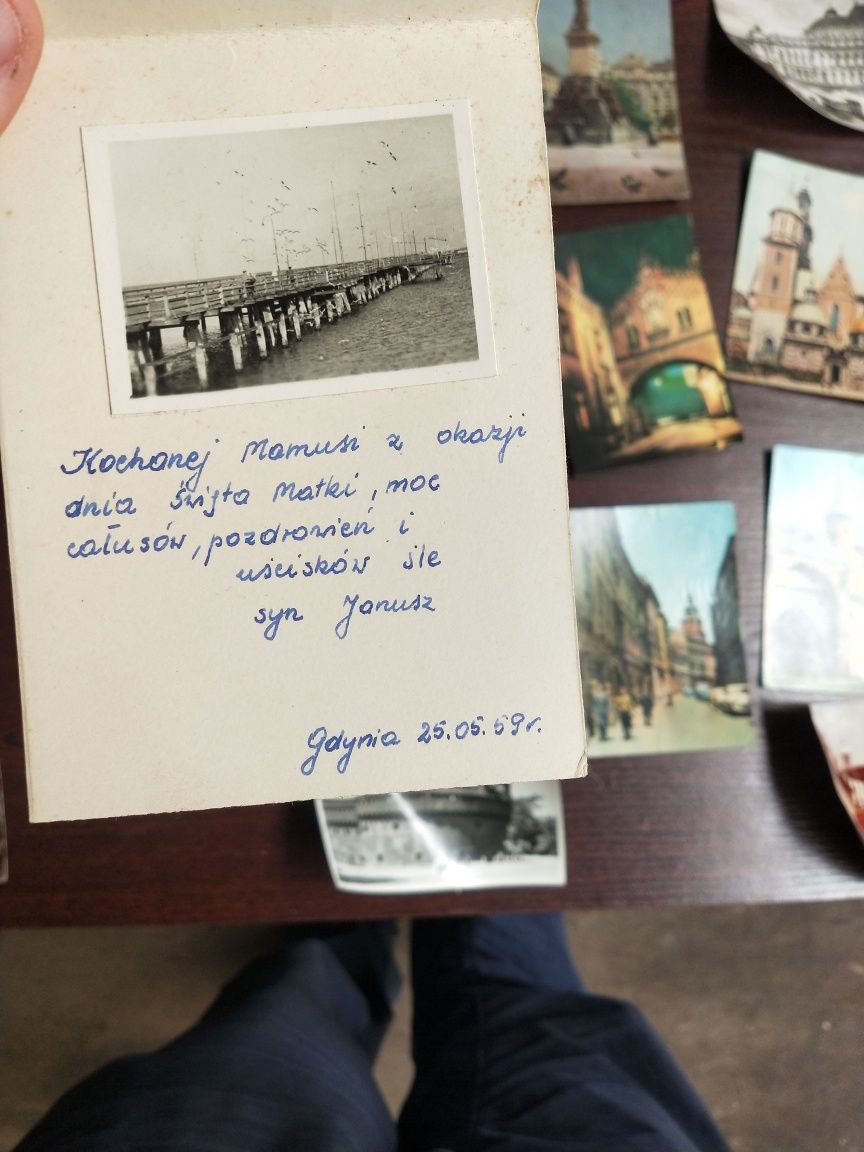 Kochanej Mamusi z okazji
dnia Święta Matki, moc
całusów, pozdrowień i
uścisków śle
syn Janusz
Gdynia 25.05.59r.